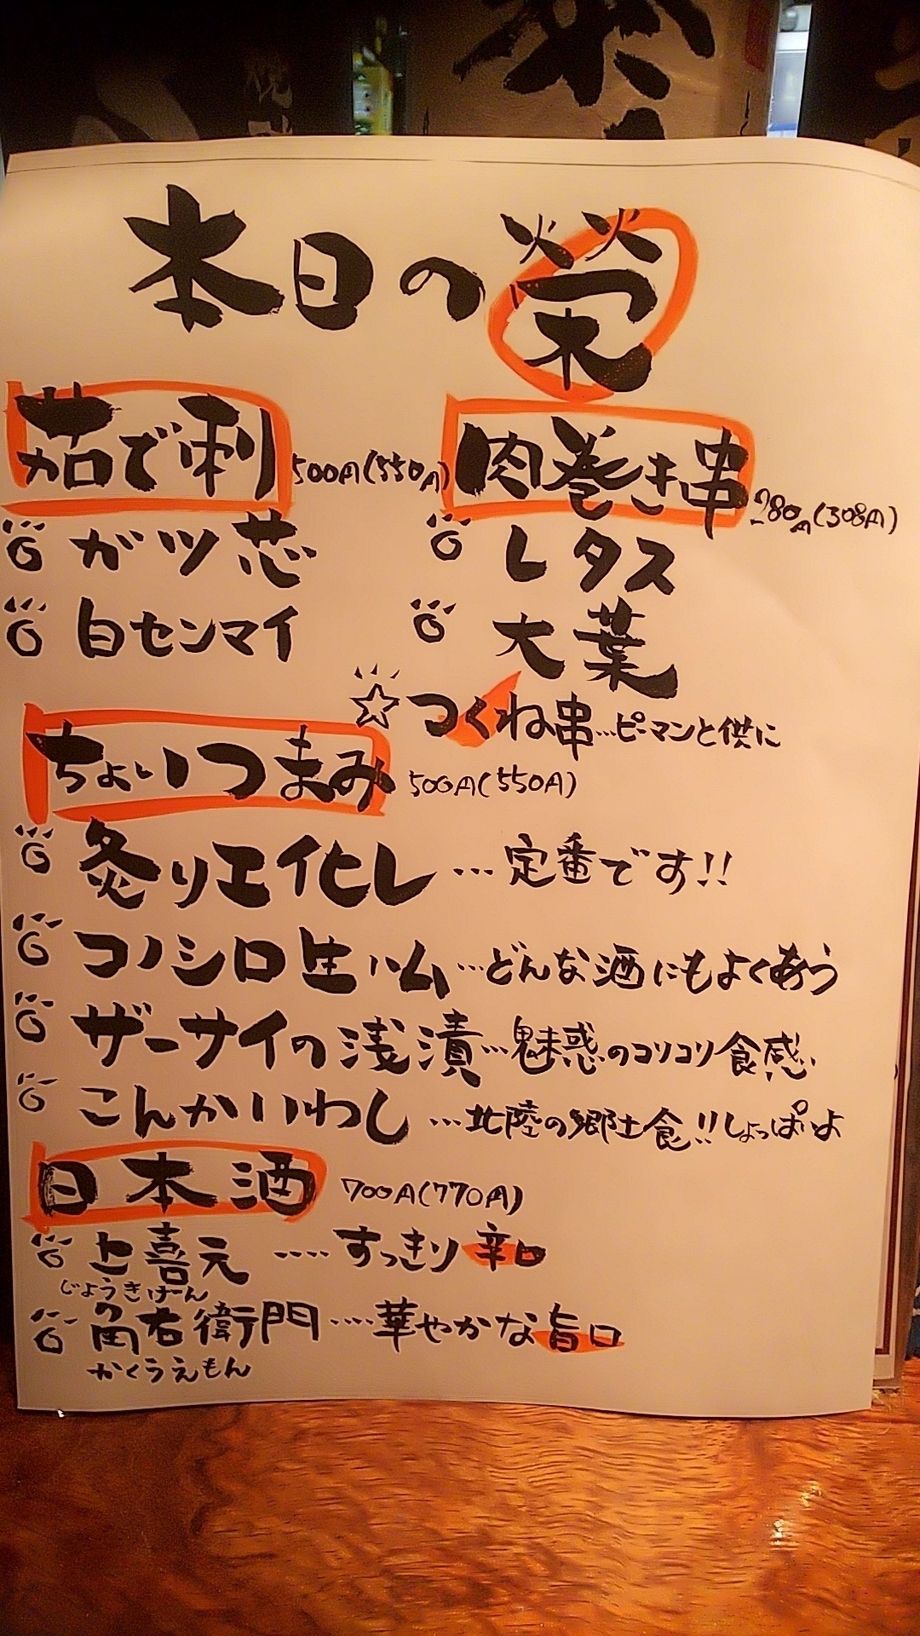 本日の榮
茹で刺 500円(550円)
ガツ芯
白センマイ
肉巻き串 280円(308円)
レタス
大葉
つくね串…ピーマンと供に
ちょいつまみ 500円(550円)
炙りエイヒレ…定番です!!
コノシロ生ハム…どんな酒にもよくあう
ザーサイの浅漬…魅惑のコリコリ食感
こんかいわし…北陸の郷土食!!しょっぱいよ
日本酒 700円(770円)
上喜元 ‥‥すっきり辛口
じょうきげん
角右衛門‥‥華やかな旨口
かくうえもん